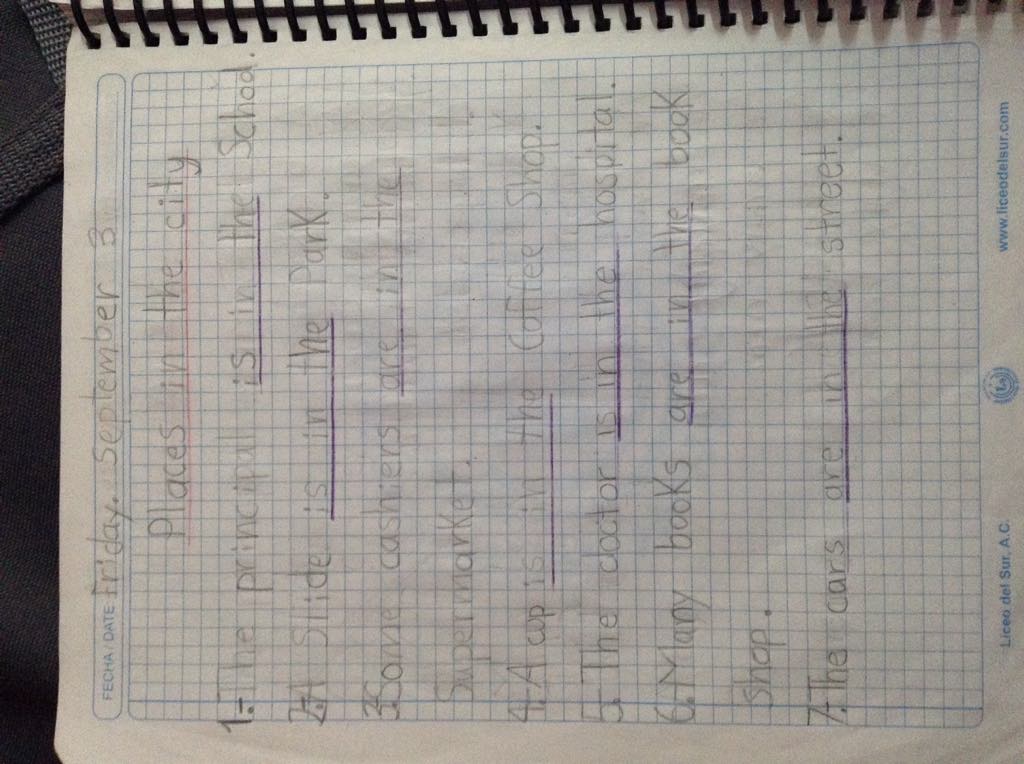 FECHA / DATE: Friday, September 3
Places in the city
1.- The principal is in the School.
2.- A Slide is in the Park.
3. Some cashiers are in the
Supermarket.
4.- A cup is in the Coffee Shop.
5. The doctor is in the hospital.
6. Many books are in the book
shop.
7.- The cars are in the street.
Liceo del Sur, A.C. www.liceodelsur.com